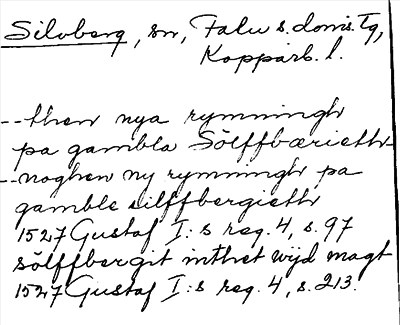 Silvberg, sn, Falu s. doms. tg,
Kopparb. l.
--then nya rymningh
pa gambla Sölffbæriett--
--noghen ny rymningh pa
gamble silffbergieth
1527 Gustaf I:s reg. 4, s. 97
sölffbergit inthet wijd magt
1527 Gustaf I:s reg. 4, s. 213.